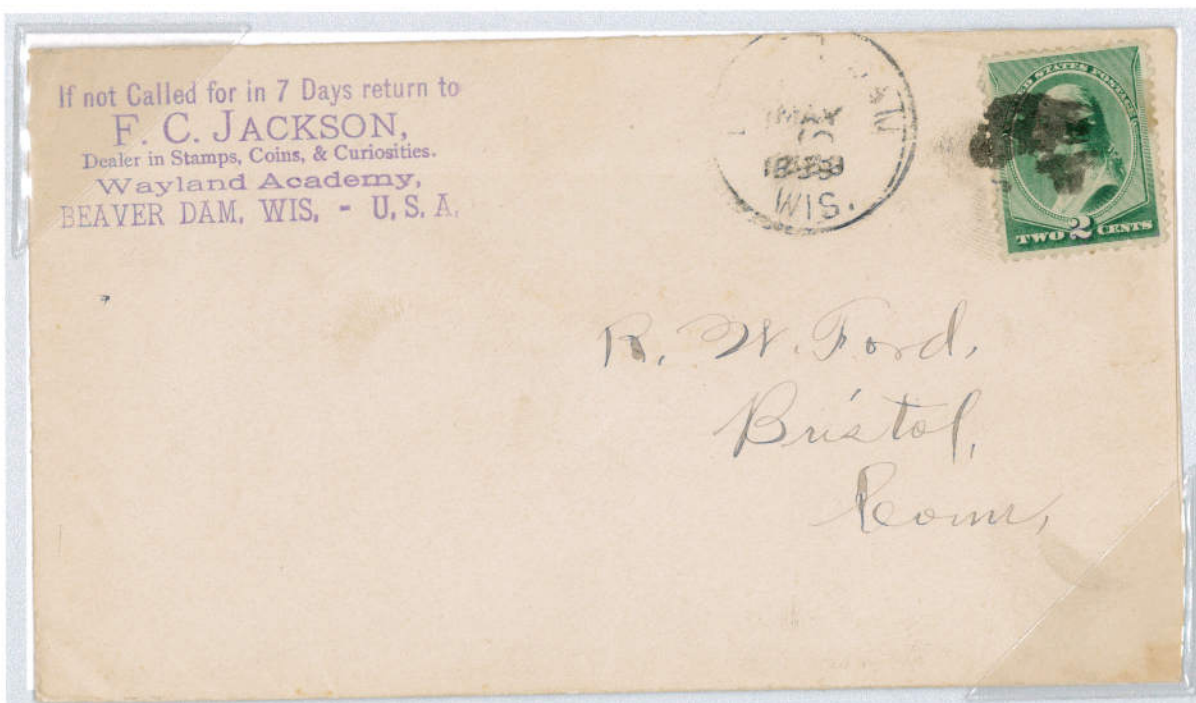 If not Called for in 7 Days return to
F. C. JACKSON,
Dealer in Stamps, Coins, & Curiosities.
Wayland Academy,
BEAVER DAM, WIS. - U. S. A.
MAY
WIS.
UNITED STATES POSTAGE
TWO 2 CENTS
R. W. Ford,
Bristol,
Conn,